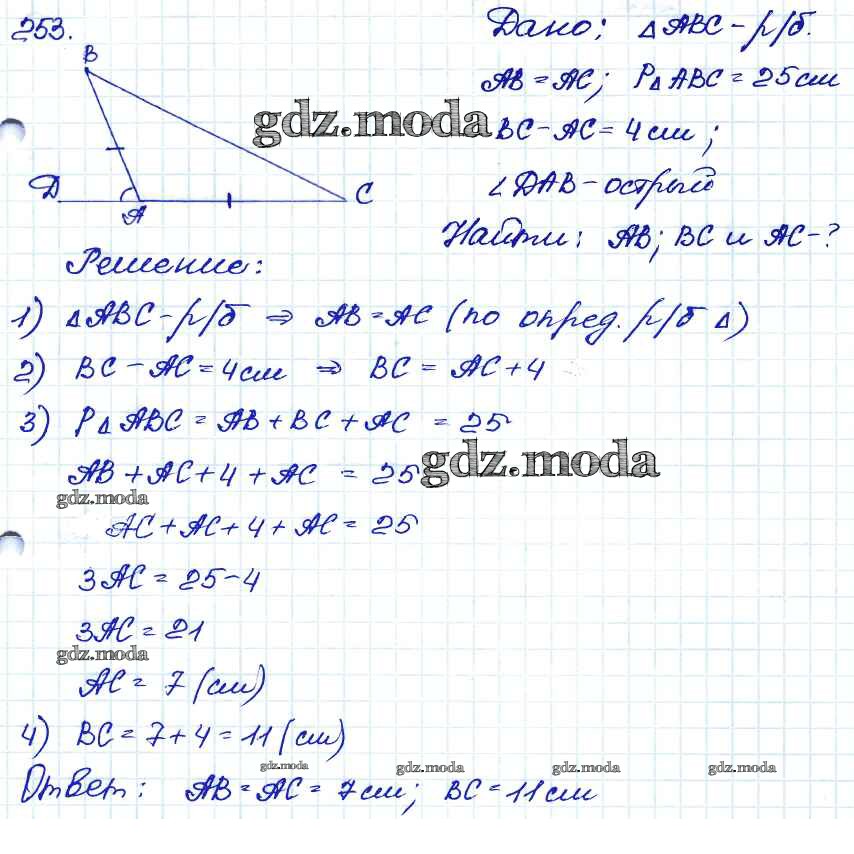 253.
B
D
A
C
Дано: △ABC – р/б.
AB = AC; P△ABC = 25 см
BC – AC = 4 см;
∠DAB – острый
Найти: AB; BC и AC – ?
gdz.moda
Решение:
1) △ABC – р/б ⇒ AB = AC (по опред. р/б △)
2) BC – AC = 4 см ⇒ BC = AC + 4
3) P△ABC = AB + BC + AC = 25
AB + AC + 4 + AC = 25
gdz.moda
gdz.moda
AC + AC + 4 + AC = 25
3AC = 25 – 4
3AC = 21
gdz.moda
AC = 7 (см)
4) BC = 7 + 4 = 11 (см)
gdz.moda gdz.moda gdz.moda gdz.moda
Ответ: AB = AC = 7 см; BC = 11 см